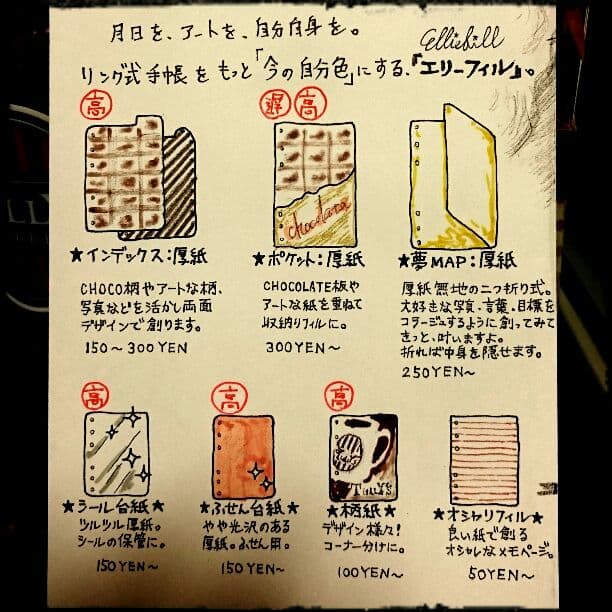 月日を、アートを、自分自身を。
ellie fill
リング式手帳をもっと「今の自分色」にする、『エリーフィル』。
高
遅 高
chocolate
★インデックス:厚紙
CHOCO柄やアートな柄、
写真などを活かし両面
デザインで創ります。
150〜300YEN
★ポケット:厚紙
CHOCOLATE板や
アートな紙を重ねて
収納リフィルに。
300YEN〜
★夢MAP:厚紙
厚紙無地の二つ折り式。
大好きな写真、言葉、目標を
コラージュするように創ってみて
きっと、叶いますよ。
折れば中身を隠せます。
250YEN〜
高
高
高
Tully's
★シール台紙★
ツルツル厚紙。
シールの保管に。
150YEN〜
★ふせん台紙★
やや光沢のある
厚紙。ふせん用。
150YEN〜
★柄紙★
デザイン様々!
コーナー分けに。
100YEN〜
★オシャリフィル★
良い紙で創る
オシャレなメモページ。
50YEN〜